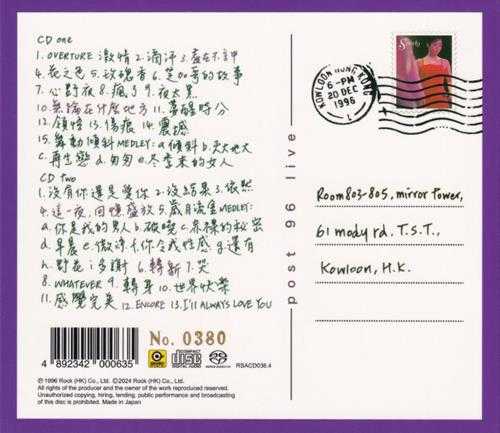 CD one
1. OVERTURE 激情 2. 滴汗 3. 盡在不言中
4. 花之色 5. 玫瑰香 6. 芝加哥的故事
7. 心野夜 8. 瘋了 9. 夜太黑
10. 無論在什麼地方 11. 夢醒時分
12. 領悟 13. 傷痕 14. 震撼
15. 舞動傾斜MEDLEY: a. 傾斜 b.
c. 再生戀 d. 匆匆 e. 冬季來的女人
CD two
1. 沒有你還是愛你 2. 沒結果 3. 依然
4. 這一夜,回憶盛放 5. MEDLEY:
a. 你是我的男人 b. 破曉 c. 裸的秘密
d. 早晨 e. f. 你令我性感 g. 還有
h. 野花 i. 多謝 6. 7. 哭
8. WHATEVER 9. 轉身 10. 世界快樂
11. 感覺完美 12. ENCORE 13. I'LL ALWAYS LOVE YOU
4 892342 000635
No. 0380
COMPACT disc DIGITAL AUDIO
RSACD038.4
℗ 1996 Rock (HK) Co., Ltd. Ⓒ2024 Rock (HK) Co., Ltd.
All rights of the producer and the owner of the work reproduced reserved.
Unauthorized copying, hiring, lending, public performance and broadcasting
of this disc is prohibited. Made in Japan
post 96 live
Sandy
KOWLOON HONG KONG
6-PM
20 DEC
1996
L
Room 803-805, mirror Tower,
61 mody rd. T.S.T.,
Kowloon, H.K.